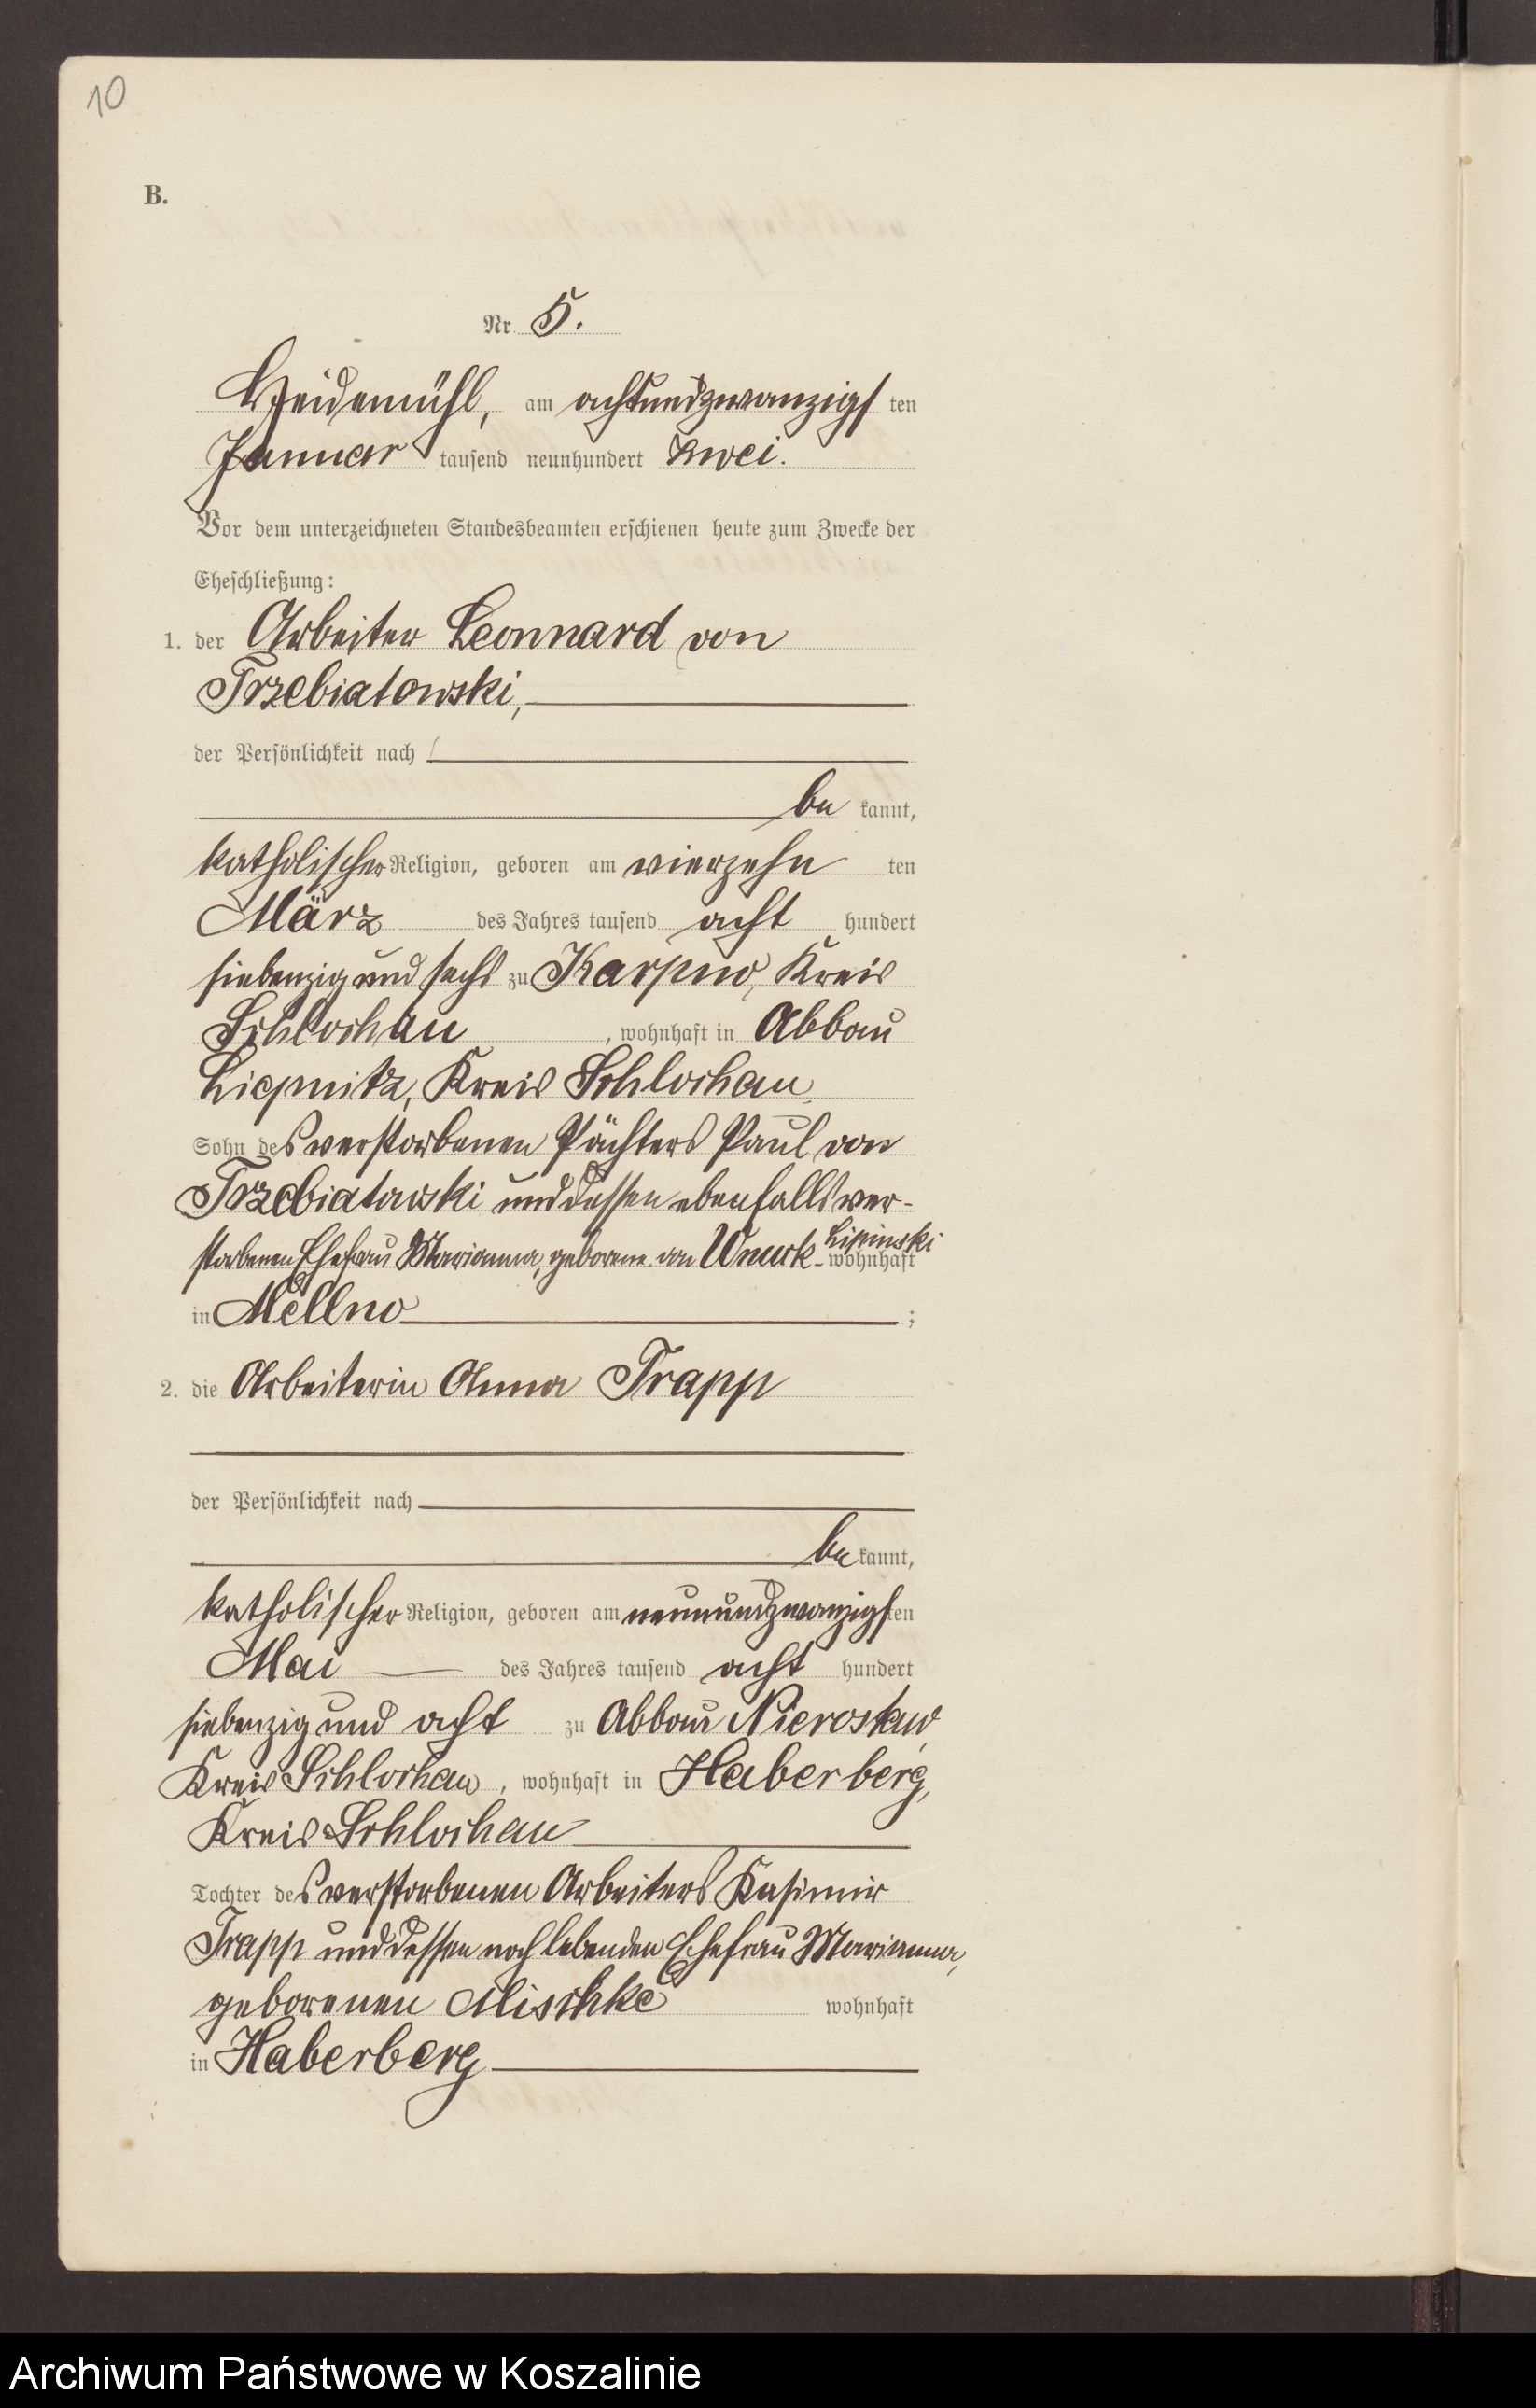 10
B.
Nr. 5.
Heidemühl, am achtundzwanzigsten
Januar tausend neunhundert zwei.
Vor dem unterzeichneten Standesbeamten erschienen heute zum Zwecke der
Eheschließung:
1. der Arbeiter Leonnard von
Trzebiatowski,
der Persönlichkeit nach
be kannt,
katholischer Religion, geboren am vierzehn ten
März des Jahres tausend acht hundert
siebenzig und sechs zu Karpno, Kreis
Schlochau, wohnhaft in Abbau
Liepnitz, Kreis Schlochau
Sohn des verstorbenen Pächters Paul von
Trzebiatowski und dessen ebenfalls ver-
storbenen Ehefrau Marianna, geborene von Wnuck-Lipinski wohnhaft
in Mellno ;
2. die Arbeiterin Anna Trapp
der Persönlichkeit nach
be kannt,
katholischer Religion, geboren am neunundzwanzigsten
Mai des Jahres tausend acht hundert
siebenzig und acht zu Abbau Nierostaw,
Kreis Schlochau, wohnhaft in Haberberg,
Kreis Schlochau
Tochter des verstorbenen Arbeiters Kasimir
Trapp und dessen noch lebenden Ehefrau Marianna,
geborenen Mischke wohnhaft
in Haberberg
Archiwum Państwowe w Koszalinie